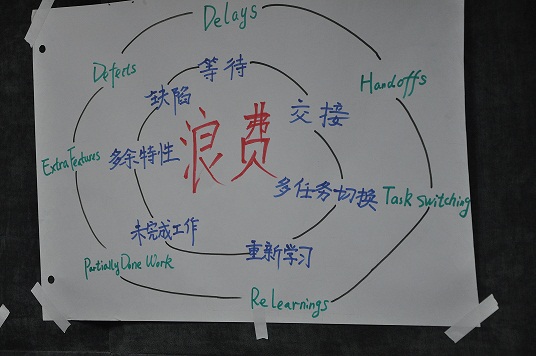 Delays
Defects
等待
Handoffs
缺陷
交接
浪费
Extra Features
多余特性
多任务切换
Task switching
未完成工作
重新学习
Partially Done Work
Relearnings